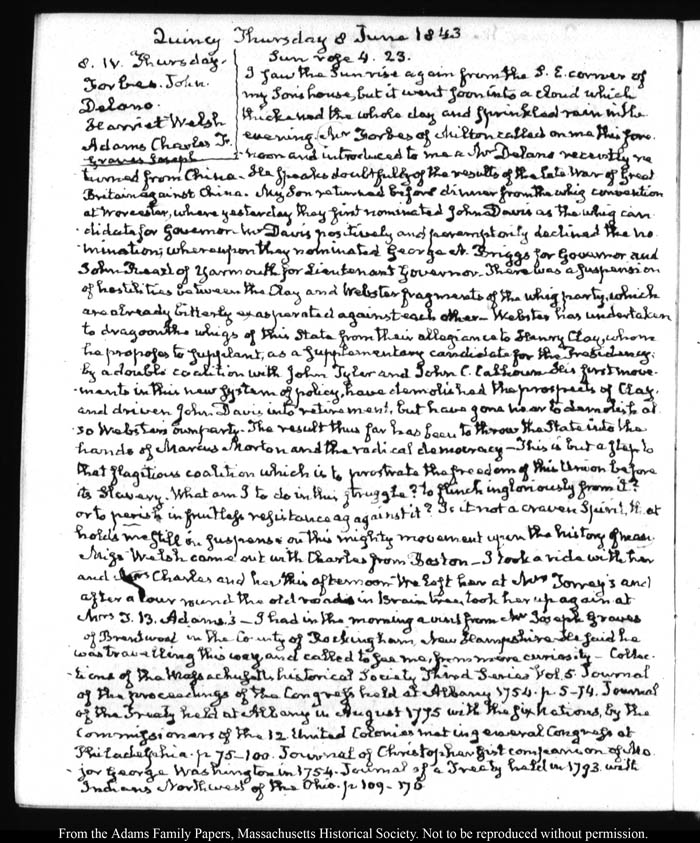 Quincy Thursday 8 June 1843
8. IV. Thursday.
Forbes. John.
Delano.
Harriet Welsh
Adams Charles F.
Graves Joseph
Sun rose 4. 23.
I saw the Sun rise again from the S. E. corner of
my Son's house, but it went soon into a cloud which
thickened the whole day and sprinkled rain in the
evening. Mr Forbes of Milton called on me this fore-
noon and introduced to me a Mr Delano recently re-
turned from China. He speaks doubtfully of the results of the late War of Great
Britain against China. My Son returned before dinner from the whig convention
at Worcester, where yesterday they first nominated John Davis as the whig can-
didate for Governor. Mr Davis positively and peremptorily declined the no-
mination; whereupon they nominated George N. Briggs for Governor and
John Reed of Yarmouth for Lieutenant Governor. There was a suspension
of hostilities between the Clay and Webster fragments of the whig party, which
are already bitterly exasperated against each other— Webster has undertaken
to dragoon the whigs of this State from their allegiance to Henry Clay, whom
he proposes to supplant, as a supplementary candidate for the Presidency,
by a double coalition with John Tyler and John C. Calhoun. His first move-
ments in this new system of policy, have demolished the prospects of Clay,
and driven John Davis into retirement, but have gone near to demolish al-
so Webster's own party. The result thus far has been to throw the State into the
hands of Marcus Morton and the radical democracy— This is but a step to
that flagitious coalition which is to prostrate the freedom of this Union before
its Slavery. What am I to do in this struggle? to flinch ingloriously from it?
or to perish in fruitless resistance against it? Is it not a craven Spirit, that
holds me still in suspense on this mighty movement upon the history of man.
Miss Welsh came out with Charles from Boston— I took a ride with her
and Mrs Charles and her this afternoon We left her at Mrs Torrey's and
after a tour round the old roads in Braintree, took her up again at
Mrs T. B. Adams's— I had in the morning a visit from Mr Joseph Graves
of Brentwood in the County of Rockingham, New Hampshire. He said he
was travelling this way, and called to see me, from mere curiosity— Collec-
tions of the Massachusetts historical Society Third Series Vol. 5. Journal
of the proceedings of the Congress held at Albany 1754. p. 5–74. Journal
of the Treaty held at Albany in August 1775 with the six Nations, by the
Commissioners of the 12 United Colonies met in general Congress at
Philadelphia. p 75–100. Journal of Christopher Gist companion of Ma-
jor George Washington in 1754. Journal of a Treaty held in 1793. with
Indians Northwest of the Ohio. p 109–176
From the Adams Family Papers, Massachusetts Historical Society. Not to be reproduced without permission.